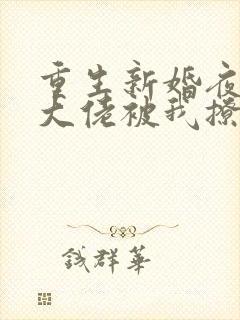 重生新婚夜
大佬被我撩
钱群华